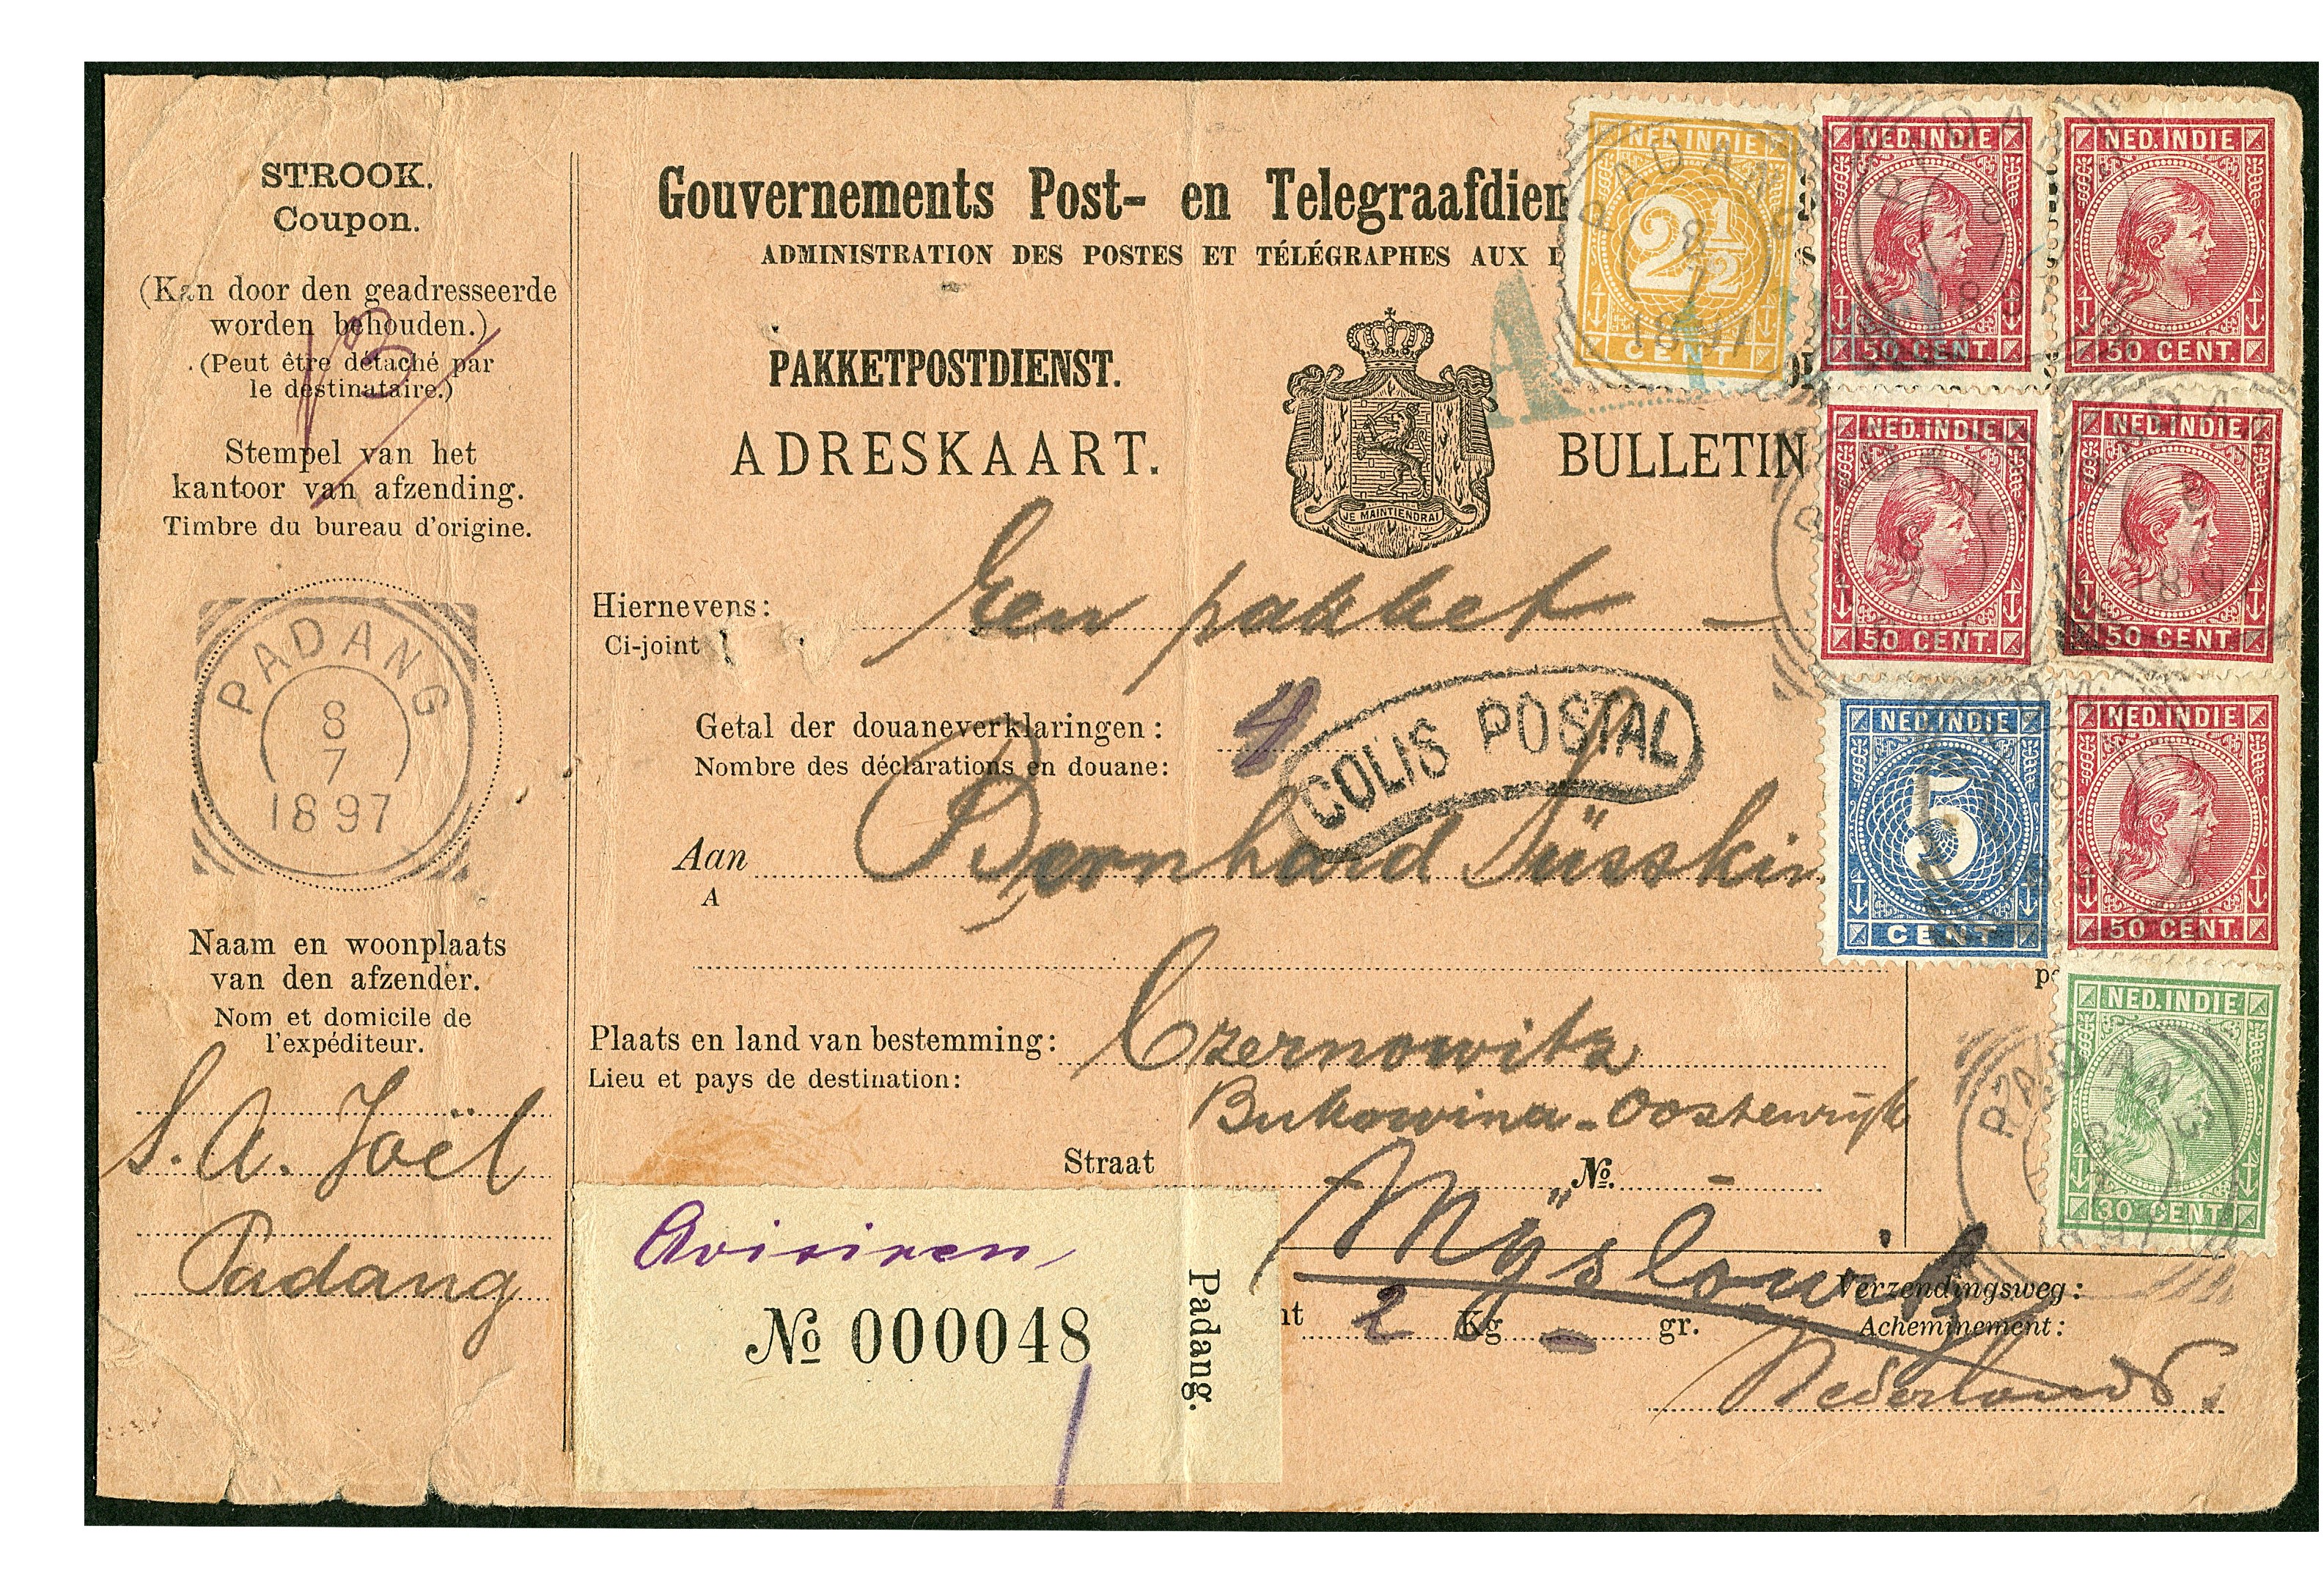 STROOK.
Coupon.
(Kan door den geadresseerde
worden behouden.)
(Peut être détaché par
le destinataire.)
Stempel van het
kantoor van afzending.
Timbre du bureau d'origine.
PADANG
8
7
1897
Naam en woonplaats
van den afzender.
Nom et domicile de
l'expéditeur.
S. A. Joël
Padang
Gouvernements Post- en Telegraafdien
ADMINISTRATION DES POSTES ET TÉLÉGRAPHES AUX
PAKKETPOSTDIENST.
ADRESKAART.
JE MAINTIENDRAI
BULLETIN
Hiernevens: Een pakket —
Ci-joint
Getal der douaneverklaringen: 4
Nombre des déclarations en douane:
COLIS POSTAL
Aan Bernhard Süsskin
A
Plaats en land van bestemming: Czernowitz
Lieu et pays de destination:
Bukowina - Oostenrijk
Straat № —
"Myslowitz
Avisiren
№ 000048
Padang.
nt 2 Kg — gr.
Verzendingsweg:
Acheminement:
Nederland.
NED. INDIE
2½
CENT
PADANG
8
7
1897
NED. INDIE
50 CENT.
NED. INDIE
50 CENT.
NED. INDIE
50 CENT.
NED. INDIE
50 CENT.
NED. INDIE
5
CENT
NED. INDIE
50 CENT.
NED. INDIE
30 CENT.
PADANG
8
7
1897